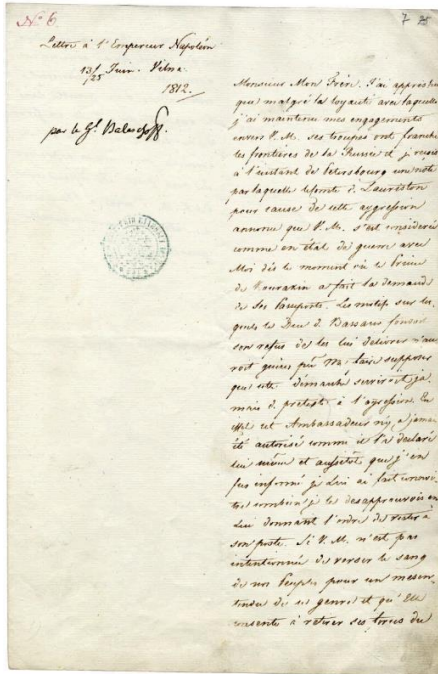 № 6
7
Lettre à l'Empereur Napoléon
13/25 Juin. Vilna
1812.
par le Gl. Balachoff.
Monsieur Mon Frère. J'ai appris hier
que malgré la loyauté avec laquelle
j'ai maintenu mes engagements
envers V. M. ses troupes ont franchi
les frontières de la Russie et je reçois
à l'instant de Petersbourg une note
par laquelle le Comte d. Lauriston
pour cause de cette aggression
annonce que V. M. s'est considérée
comme en état de guerre avec
Moi dès le moment où le Prince
de Kourakin a fait la demande
de ses Passeports. Les motifs sur les
quels le Duc d. Bassano fondait
son refus de les lui délivrer n'au
roit pu Me faire supposer
que cette démarche serviroit ja
mais d. prétexte à l'agression. En
effet cet Ambassadeur n'y a jamais
été autorisé comme il l'a déclaré
lui même et aussitôt que j'en
fus informé je Lui ai fait connoi
tre combien je le desapprouvois en
Lui donnant l'ordre de rester à
son poste. Si V. M. n'est pas
intentionnée de verser le sang
de nos Peuples pour un mesen
tendu de ce genre et qu'Elle
consente à retirer ses troupes du